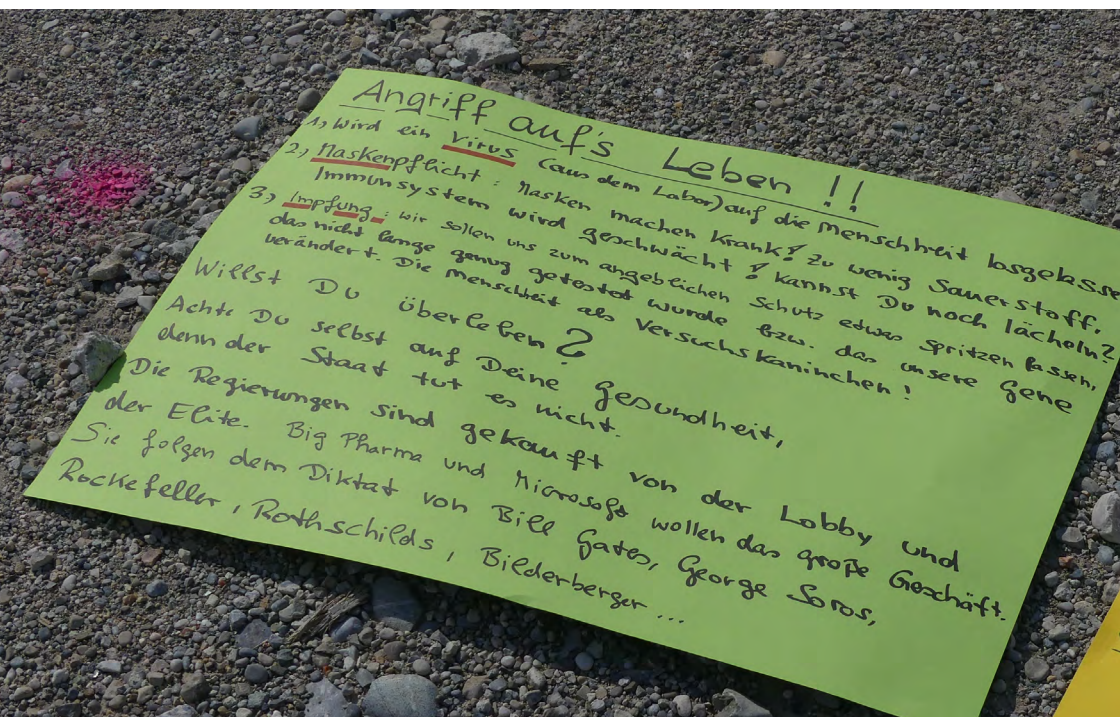 Angriff auf's Leben !!
1, Wird ein Virus (aus dem Labor) auf die Menschheit losgelasse
2, Maskenpflicht : Masken machen krank! Zu wenig Sauerstoff.
Immunsystem wird geschwächt! Kannst Du noch lächeln?
3, Impfung : wir sollen uns zum angeblichen Schutz etwas spritzen lassen,
das nicht lange genug getestet wurde bzw. das unsere Gene
verändert. Die Menschheit als Versuchskaninchen!
Willst Du überleben?
Achte Du selbst auf Deine Gesundheit,
denn der Staat tut es nicht.
Die Regierungen sind gekauft von der Lobby und
der Elite. Big Pharma und Microsoft wollen das große Geschäft.
Sie folgen dem Diktat von Bill Gates, George Soros,
Rockefeller, Rothschilds, Bilderberger...